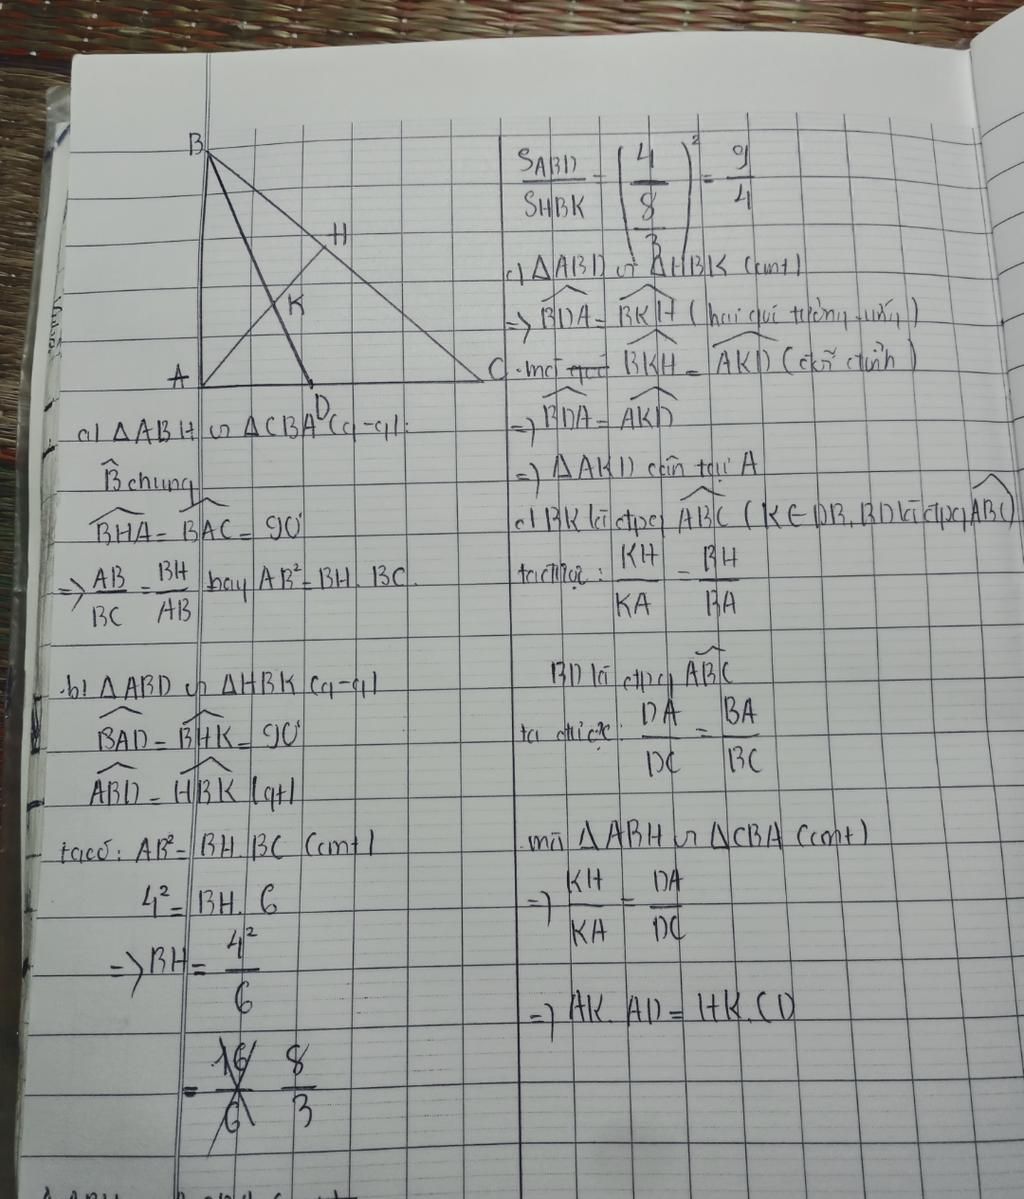 B
H
K
A
D
C
a) ΔABH ∽ ΔCBA (g-g):
B̂ chung
BHA = BAC = 90°
=> AB/BC = BH/AB hay AB² = BH. BC
b) ΔABD ∽ ΔHBK (g-g)
BAD = BHK = 90°
ABD = HBK (gt)
ta có: AB² = BH. BC (cmt)
4² = BH. 6
=> BH = 4²/6
= 16/6 8/3
SABD/SHBK = (4/(8/3))² = 9/4
c) ΔABD ∽ ΔHBK (cmt)
=> BDA = BKH (hai góc tương ứng)
mà BKH = AKD (đối đỉnh)
=> BDA = AKD
=> ΔAKD cân tại A
d) BK là đpg ABC (K ∈ DB, BD là đpg ABC)
ta được: KH/KA = BH/BA
BD là đpg ABC
ta được: DA/DC = BA/BC
mà ΔABH ∽ ΔCBA (cmt)
=> KH/KA = DA/DC
=> AK. AD = HK. CD